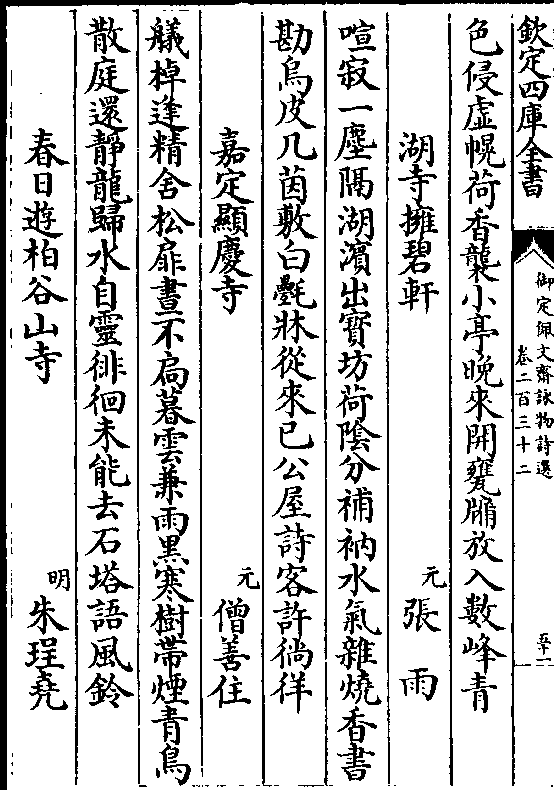 欽定四庫全書
御定佩文齋詠物詩選
卷二百三十二
色侵虛幌荷香襲小亭晚來開甕牖放入數峰青
湖寺擁碧軒
元
張雨
喧寂一塵隔湖濱出寳坊荷陰分補衲水氣雜燒香書
勘烏皮几茵敷白㲲牀從來已公屋詩客許徜徉
嘉定顯慶寺
元
僧善住
艤棹逢精舍松扉晝不扃暮雲兼雨黑寒樹帶煙青鳥
散庭還靜龍歸水自靈徘徊未能去石塔語風鈴
春日遊柏谷山寺
明
朱珵堯